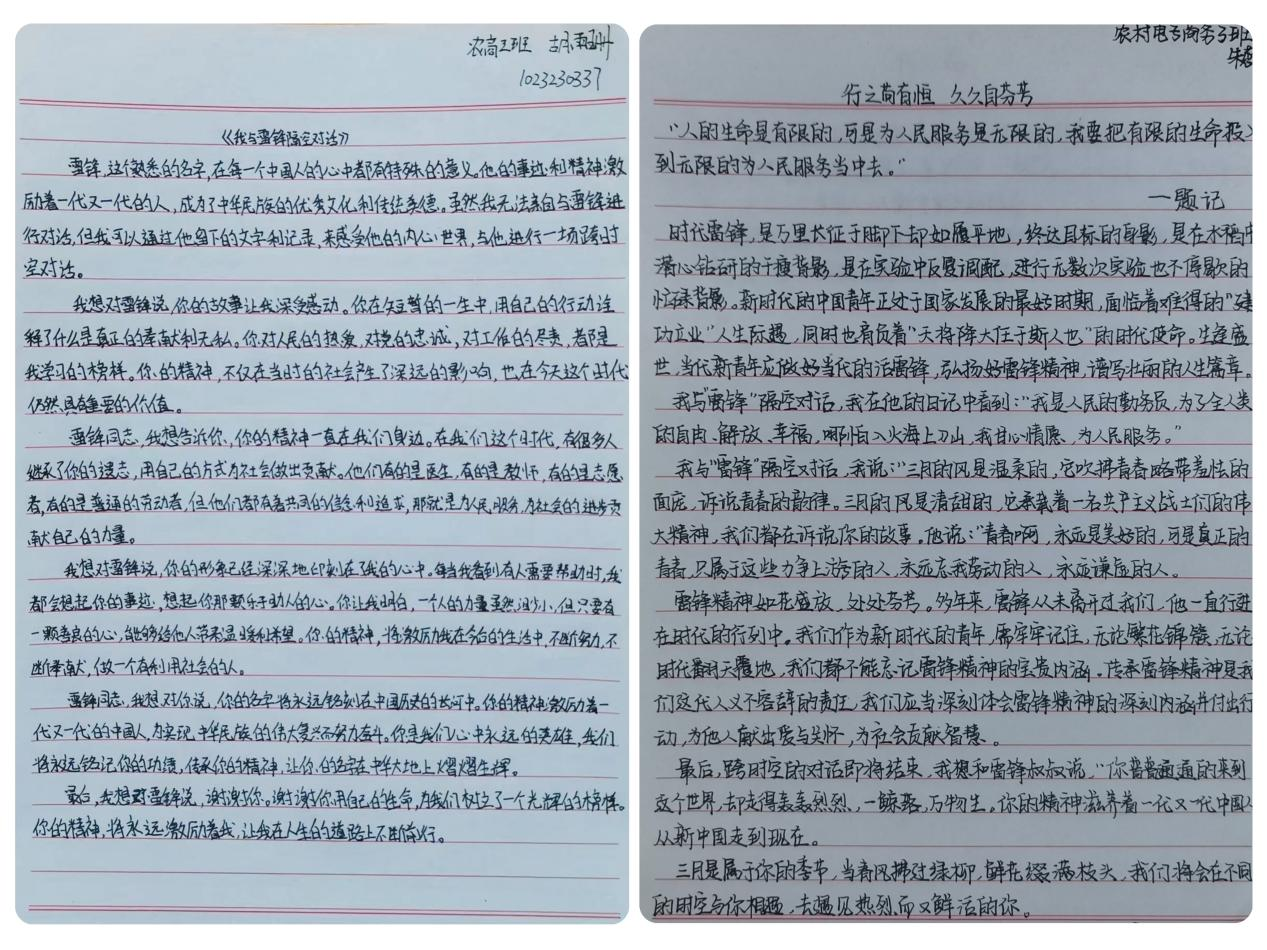 农高2班
1023230337
《我与雷锋隔空对话》
雷锋,这个熟悉的名字,在每一个中国人的心中都有特殊的意义。他的事迹和精神激
励着一代又一代的人,成为了中华民族的优秀文化和传统美德。虽然我无法亲自与雷锋进
行对话,但我可以通过他留下的文字和记录,来感受他的内心世界,与他进行一场跨时
空对话。
我想对雷锋说,你的故事让我深受感动。你在短暂的一生中,用自己的行动诠
释了什么是真正的奉献和无私。你对人民的热爱,对党的忠诚,对工作的尽责,都是
我学习的榜样。你的精神,不仅在当时的社会产生了深远的影响,也在今天这个时代
仍然具有重要的价值。
雷锋同志,我想告诉你,你的精神一直在我们身边。在我们这个时代,有很多人
继承了你的遗志,用自己的方式为社会做出贡献。他们有的是医生,有的是教师,有的是志愿
者,有的是普通的劳动者,但他们都有着共同的信念和追求,那就是为人民服务,为社会的进步贡
献自己的力量。
我想对雷锋说,你的形象已经深深地印刻在了我的心中。每当我看到有人需要帮助时,我
都会想起你的事迹,想起你那颗乐于助人的心。你让我明白,一个人的力量虽然渺小,但只要有
一颗善良的心,能够给他人带来温暖和希望。你的精神,将激励我在今后的生活中,不断努力,不
断奉献,做一个有利用社会的人。
雷锋同志,我想对你说,你的名字将永远铭刻在中国历史的长河中。你的精神激励着一
代又一代的中国人,为实现中华民族的伟大复兴而努力奋斗。你是我们心中永远的英雄,我们
将永远铭记你的功绩,传承你的精神,让你的名字在中华大地上熠熠生辉。
最后,我想要对雷锋说,谢谢你。谢谢你用自己的生命,为我们树立了一个光辉的榜样。
你的精神,将永远激励着我,让我在人生的道路上不断前行。
农村电子商务3班
行之苟有恒 久久自芬芳
“人的生命是有限的,可是为人民服务是无限的,我要把有限的生命投入
到无限的为人民服务当中去。”
—题记
时代雷锋,是万里长征于脚下却如履平地,终达目标的身影,是在水稻中
潜心钻研的干瘦背影,是在实验中反复调配,进行无数次实验也不停歇的
忙碌背影。新时代的中国青年正处于国家发展的最好时期,面临着难得的“建
功立业”人生际遇,同时也肩负着“天将降大任于斯人也”的时代使命。生逢盛
世,当代新青年应做好当代的活雷锋,弘扬好雷锋精神,谱写壮丽的人生篇章。
我与“雷锋”隔空对话,我在他的日记中看到:“我是人民的勤务员,为了全人类
的自由、解放、幸福,哪怕入火海上刀山,我甘心情愿,为人民服务。”
我与“雷锋”隔空对话,我说:“三月的风是温柔的,它吹拂青春略带羞怯的
面庞,诉说青春的韵律。三月的风是清甜的,它承载着一名共产主义战士们的伟
大精神,我们都在诉说你的故事。他说:“青春啊,永远是美好的,可是真正的
青春,只属于这些力争上游的人,永远忘我劳动的人,永远谦虚的人。
雷锋精神如花盛放,处处芬芳。多年来,雷锋从未离开过我们,他一直行进
在时代的行列中。我们作为新时代的青年,需牢牢记住,无论繁花锦簇,无论
时代翻天覆地,我们都不能忘记雷锋精神的宝贵内涵。传承雷锋精神是我
们这代人义不容辞的责任,我们应当深刻体会雷锋精神的深刻内涵并付出行
动,为他人献出爱与关怀,为社会贡献智慧。
最后,跨时空的对话即将结束,我想和雷锋叔叔说,“你普普通通的来到
这个世界,却走得轰轰烈烈,一鲸落,万物生。你的精神滋养着一代又一代中国人
从新中国走到现在。
三月是属于你的季节,当春风拂过绿柳,鲜花缀满枝头,我们将会在不同
的时空与你相遇,去遇见热烈而又鲜活的你。